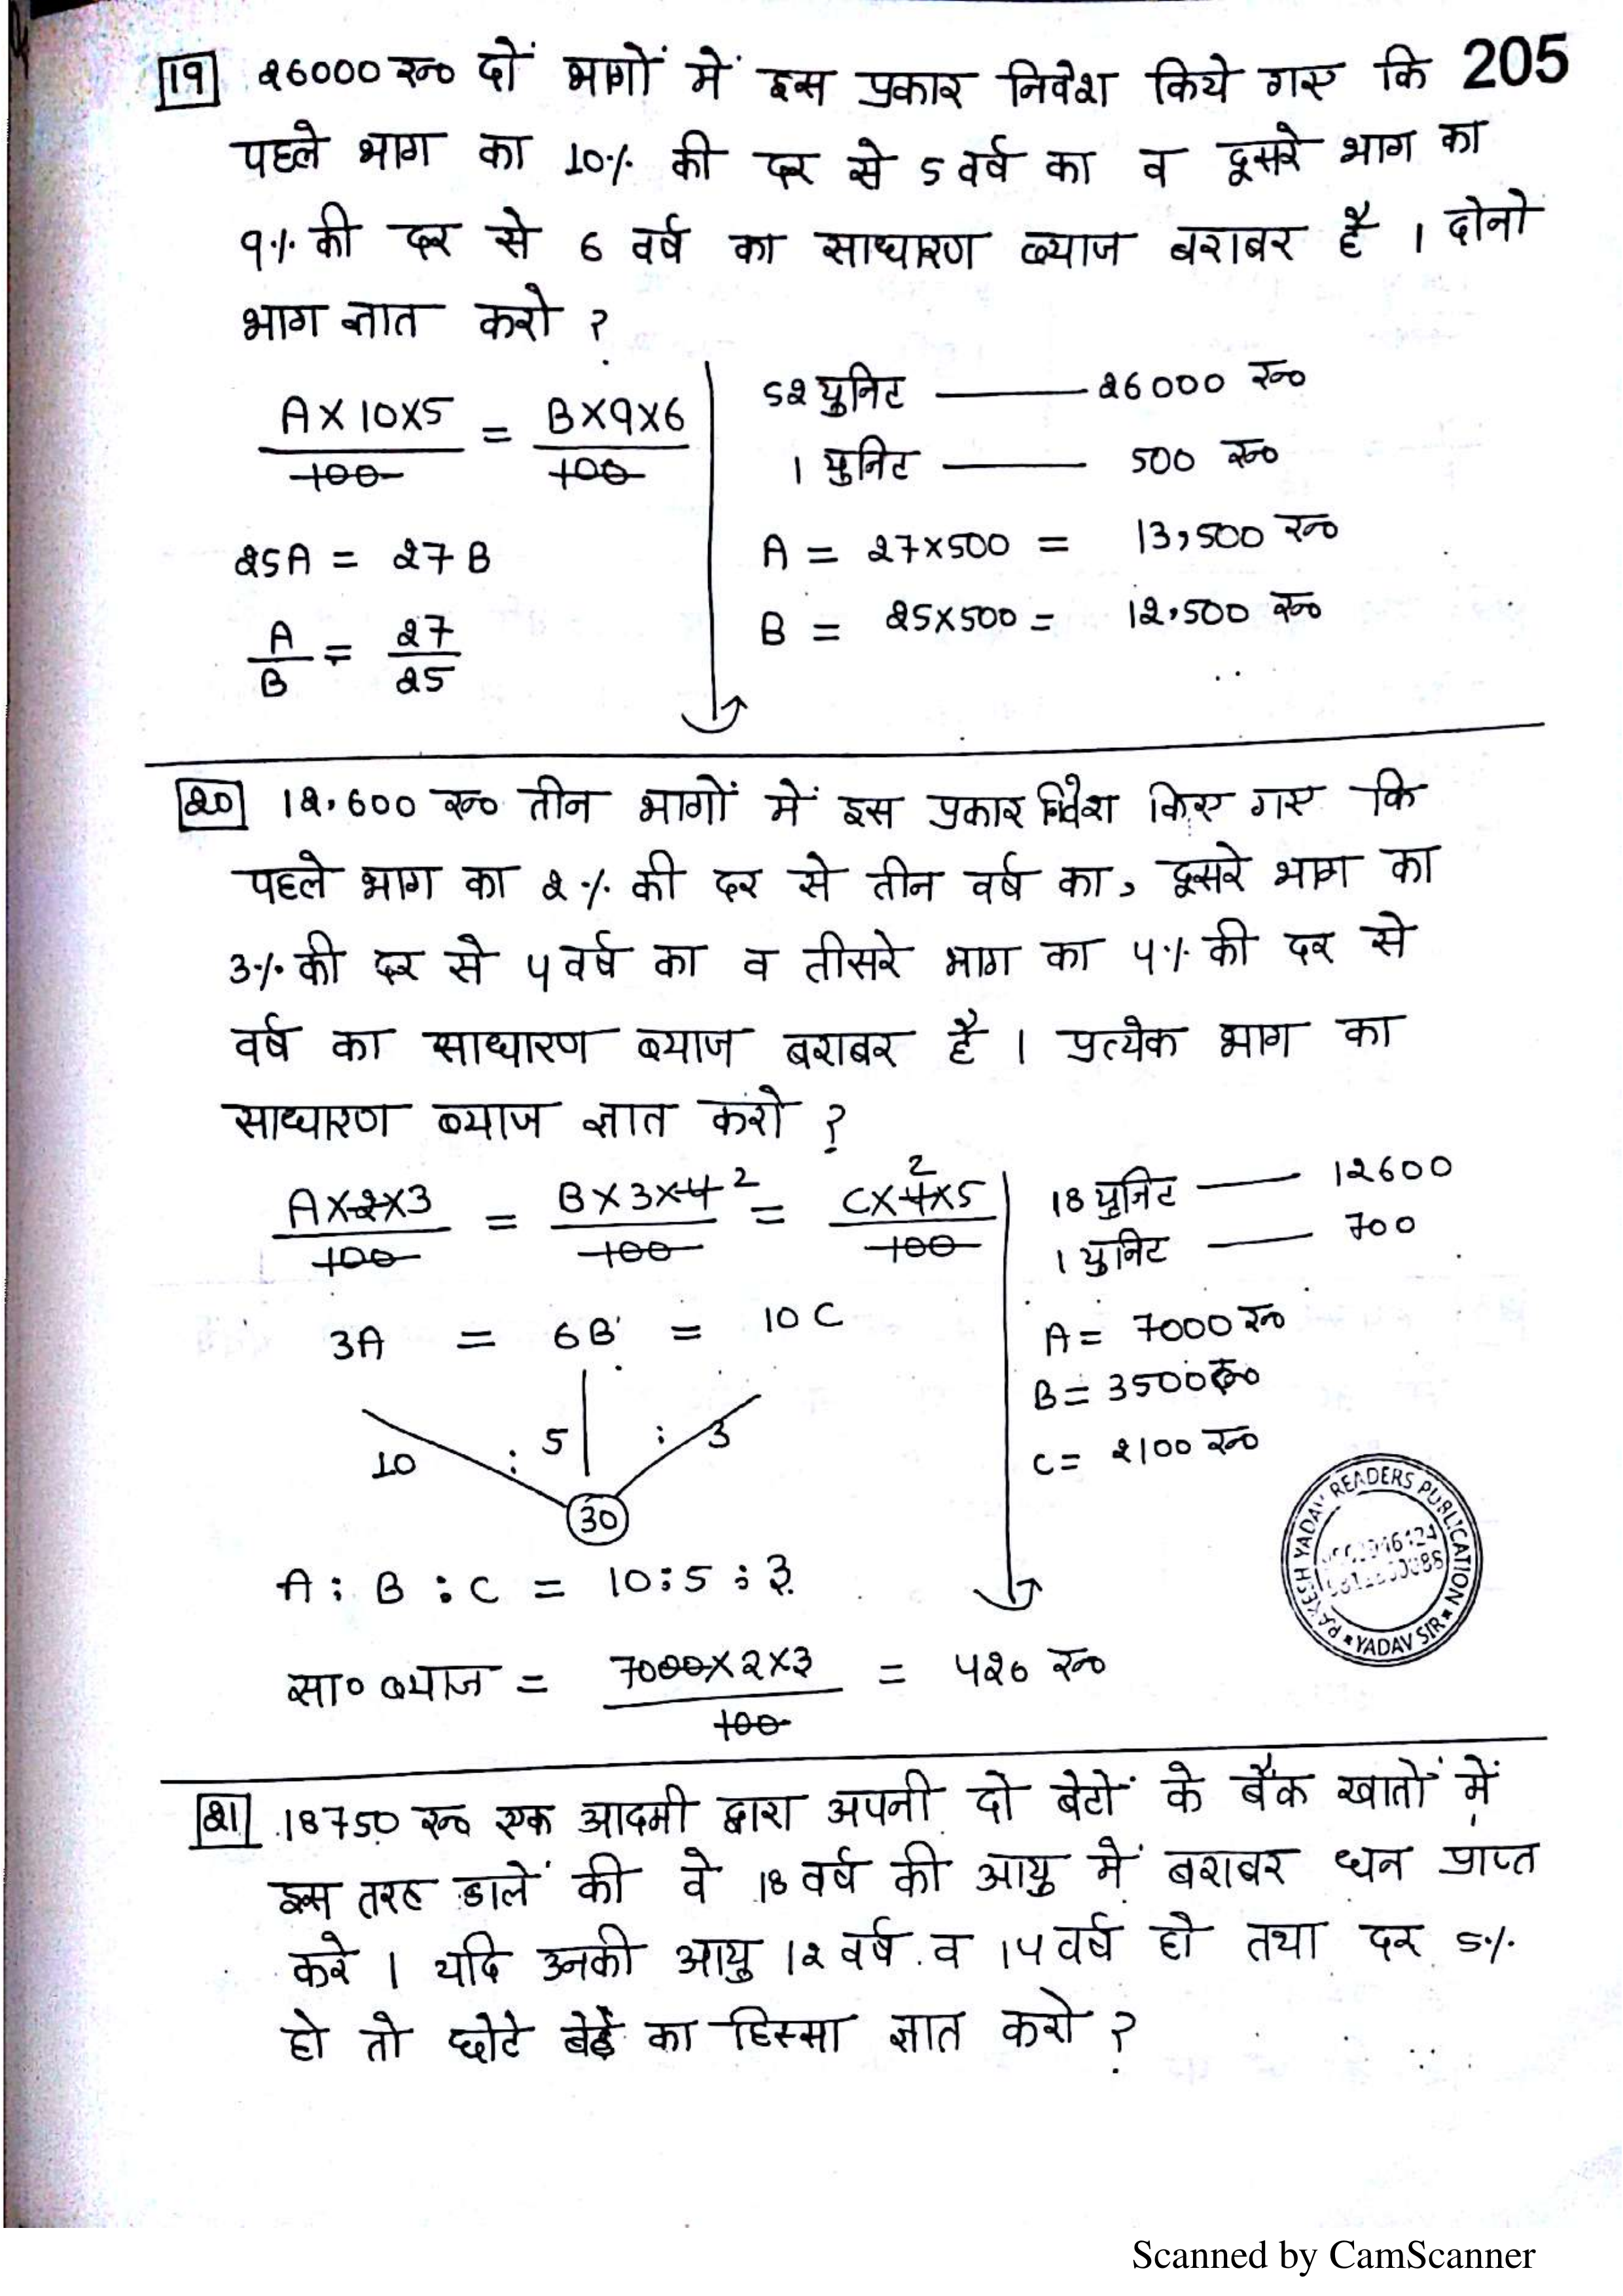 205
19 26000 रू० दों भागों में इस प्रकार निवेश किये गए कि
पहले भाग का 10% की दर से 5 वर्ष का व दूसरे भाग का
9% की दर से 6 वर्ष का साधारण ब्याज बराबर है । दोनो
भाग ज्ञात करो ?
A×10×5/100 = B×9×6/100
25A = 27B
A/B = 27/25
52 युनिट —— 26000 रू०
1 युनिट —— 500 रू०
A = 27×500 = 13,500 रू०
B = 25×500 = 12,500 रू०
20 12,600 रू० तीन भागों में इस प्रकार निवेश किए गए कि
पहले भाग का 2% की दर से तीन वर्ष का, दूसरे भाग का
3% की दर से 4 वर्ष का व तीसरे भाग का 4% की दर से
वर्ष का साधारण ब्याज बराबर है । प्रत्येक भाग का
साधारण ब्याज ज्ञात करो ?
A×2×3/100 = B×3×4 2/100 = C×4 2×5/100
3A = 6B = 10C
10 : 5 : 3
30
A : B : C = 10:5:3
18 युनिट —— 12600
1 युनिट —— 700
A = 7000 रू०
B = 3500 रू०
C = 2100 रू०
RAKESH YADAV READERS PUBLICATION
YADAV SIR
सा० ब्याज = 7000×2×3/100 = 420 रू०
21 18750 रू० एक आदमी द्वारा अपनी दो बेटों के बैंक खातों में
इस तरह डालें की वे 18 वर्ष की आयु में बराबर धन प्राप्त
करे । यदि उनकी आयु 12 वर्ष व 14 वर्ष हो तथा दर 5%
हो तो छोटे बेटे का हिस्सा ज्ञात करो ?
Scanned by CamScanner